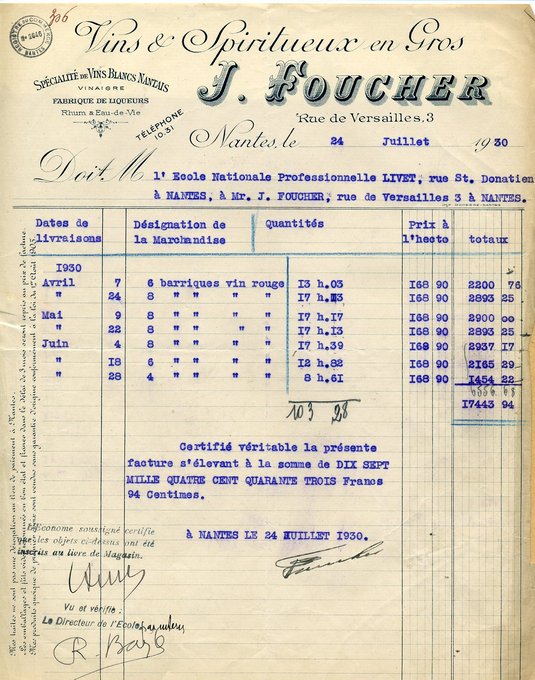 306
REGISTRE DU COMMERCE
No 9646
NANTES
Vins & Spiritueux en Gros
SPÉCIALITÉ DE VINS BLANCS NANTAIS
VINAIGRE
FABRIQUE DE LIQUEURS
Rhum & Eau-de-Vie
TÉLÉPHONE
10.31
J. FOUCHER
Rue de Versailles, 3
Nantes, le 24 Juillet 1930
Doit M
l' Ecole Nationale Professionnelle LIVET, rue St. Donatien
à NANTES, à Mr. J. FOUCHER, rue de Versailles 3 à NANTES.
Dates de livraisons Désignation de la Marchandise Quantités Prix à l'hecto totaux
1930
Avril 7 6 barriques vin rouge 13 h.03 168 90 2200 76
" 24 8 " " " 17 h.13 168 90 2893 25
Mai 9 8 " " " 17 h.17 168 90 2900 00
" 22 8 " " " 17 h.13 168 90 2893 25
Juin 4 8 " " " 17 h.39 168 90 2937 17
" 18 6 " " " 12 h.82 168 90 2165 29
" 28 4 " " " 8 h.61 168 90 1454 22
6556 68
103 28 17443 94
Certifié véritable la présente
facture s'élevant à la somme de DIX SEPT
MILLE QUATRE CENT QUARANTE TROIS Francs
94 Centimes.
à NANTES LE 24 JUILLET 1930.
Foucher
L'Econome soussigné certifie
que les objets ci-dessus ont été
inscrits au livre de Magasin.
Vu et vérifié :
Le Directeur de l'Ecole,
Mes traites ne sont pas une dérogation au lieu de paiement à Nantes.